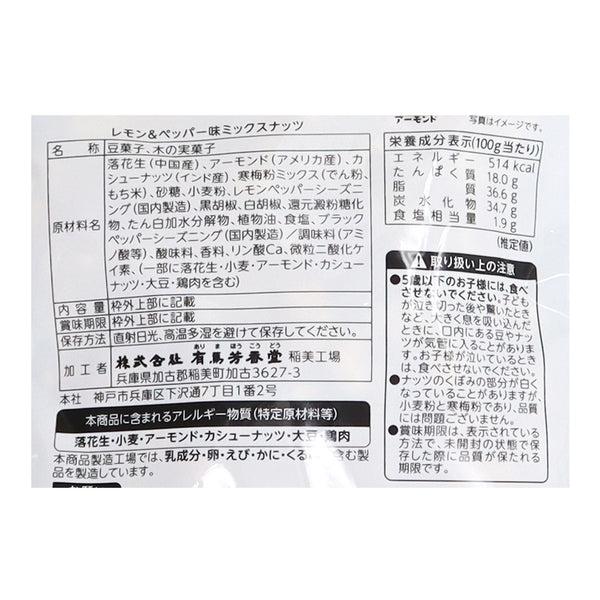 レモン&ペッパー味ミックスナッツ
名 称 豆菓子、木の実菓子
原材料名 落花生(中国産)、アーモンド(アメリカ産)、カ
シューナッツ(インド産)、寒梅粉ミックス(でん粉、
もち米)、砂糖、小麦粉、レモンペッパーシーズニ
ング(国内製造)、黒胡椒、白胡椒、還元澱粉糖化
物、たん白加水分解物、植物油、食塩、ブラック
ペッパーシーズニング(国内製造)/調味料(アミ
ノ酸等)、酸味料、香料、リン酸Ca、微粒二酸化ケ
イ素、(一部に落花生・小麦・アーモンド・カシュー
ナッツ・大豆・鶏肉を含む)
内 容 量 枠外上部に記載
賞味期限 枠外上部に記載
保存方法 直射日光、高温多湿を避けて保存してください。
加 工 者 株式会社 有馬芳香堂 稲美工場
ありまほうこうどう
兵庫県加古郡稲美町加古3627-3
本社 神戸市兵庫区下沢通7丁目1番2号
本商品に含まれるアレルギー物質(特定原材料等)
落花生・小麦・アーモンド・カシューナッツ・大豆・鶏肉
本商品製造工場では、乳成分・卵・えび・かに・くる
含む製
品を製造しています。
アーモンド
写真はイメージです。
栄養成分表示(100g当たり)
エネルギー 514 kcal
たんぱく質 18.0 g
脂質 36.6 g
炭水化物 34.7 g
食塩相当量 1.9 g
(推定値)
取り扱い上の注意
●5歳以下のお子様には、食べ
させないでください。子ども
が泣き切った後や驚いたとき
など、大きく息を吸い込んだ
ときに、口内にある豆やナッ
ツが気管に入ることがありま
す。お子様が泣いているとき
は、食べさせないでください。
●ナッツのくぼみの部分が白く
なっていることがありますが、
小麦粉と寒梅粉であり、品質
には問題ございません。
●賞味期限は、表示されている
方法で、未開封の状態で保
存した際に品質が保たれる
期限です。